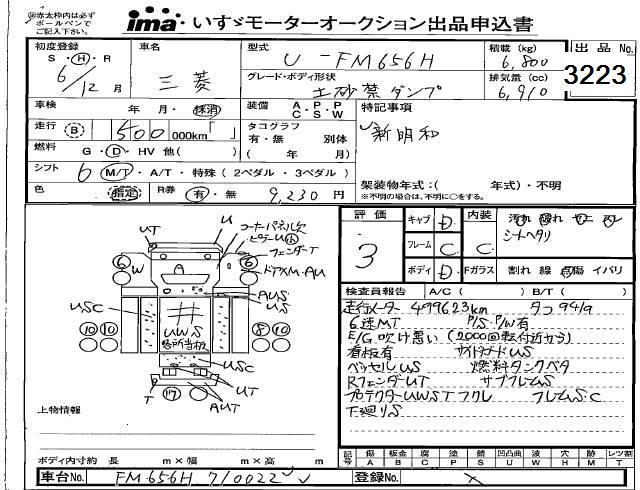 ㊟赤太枠内は必ず
ボールペンで
ご記入下さい
ima いすゞモーターオークション出品申込書
初度登録
S・H・R
6年12月
車名
三菱
型式
U-FM656H
グレード・ボディ形状
土砂禁ダンプ
積載 (kg)
6,800
排気量 (cc)
6,910
出品No.
3223
車検
年 月・抹消
装備
A・P・P
C・S・W
特記事項
新明和
走行
B
500
000km「 」
タコグラフ
有・無 別体
( 年 月)
燃料
G・D・HV 他( )
シフト
6 M/T・A/T・特殊(2ペダル・3ペダル)
架装物年式:( 年式)・不明
※不明の場合は、不明に○をする。
色
指定
R券
有・無
9,230円
評価
3
キャブ
D
フレーム
C
ボディ
D
内装
C
Fガラス
汚れ 破れ ヤニ スレ
シートヘタリ
割れ 線 点傷 イバリ
検査員報告 A/C( ) B/T( )
走行メーター 499623km タコ94/9
6速MT P/S P/W有
E/G吹け悪い(2000回転付近から)
看板有 サイドガードUS
ベッセルUS 燃料タンクベタ
RフェンダーUT サブフレームS
プロテクターUWST フクレ フレームS.C
下廻りS
UT
U
コーナーパネル欠
ピラーU小
フェンダーT
ドアXM・AU
6
W
6
AUS
US
USC
10 10
UWS
各所当板
8 10
USC
UT
T
17
AUT
上物情報
ボディ内寸約 長 m×幅 m×高 m
記号
傷 A
板金 B
腐 C
塗 P
錆 S
凹凸曲 U
波 W
穴 H
跡 M
レツ割 T
車台No.
FM656H 710022
登録No.